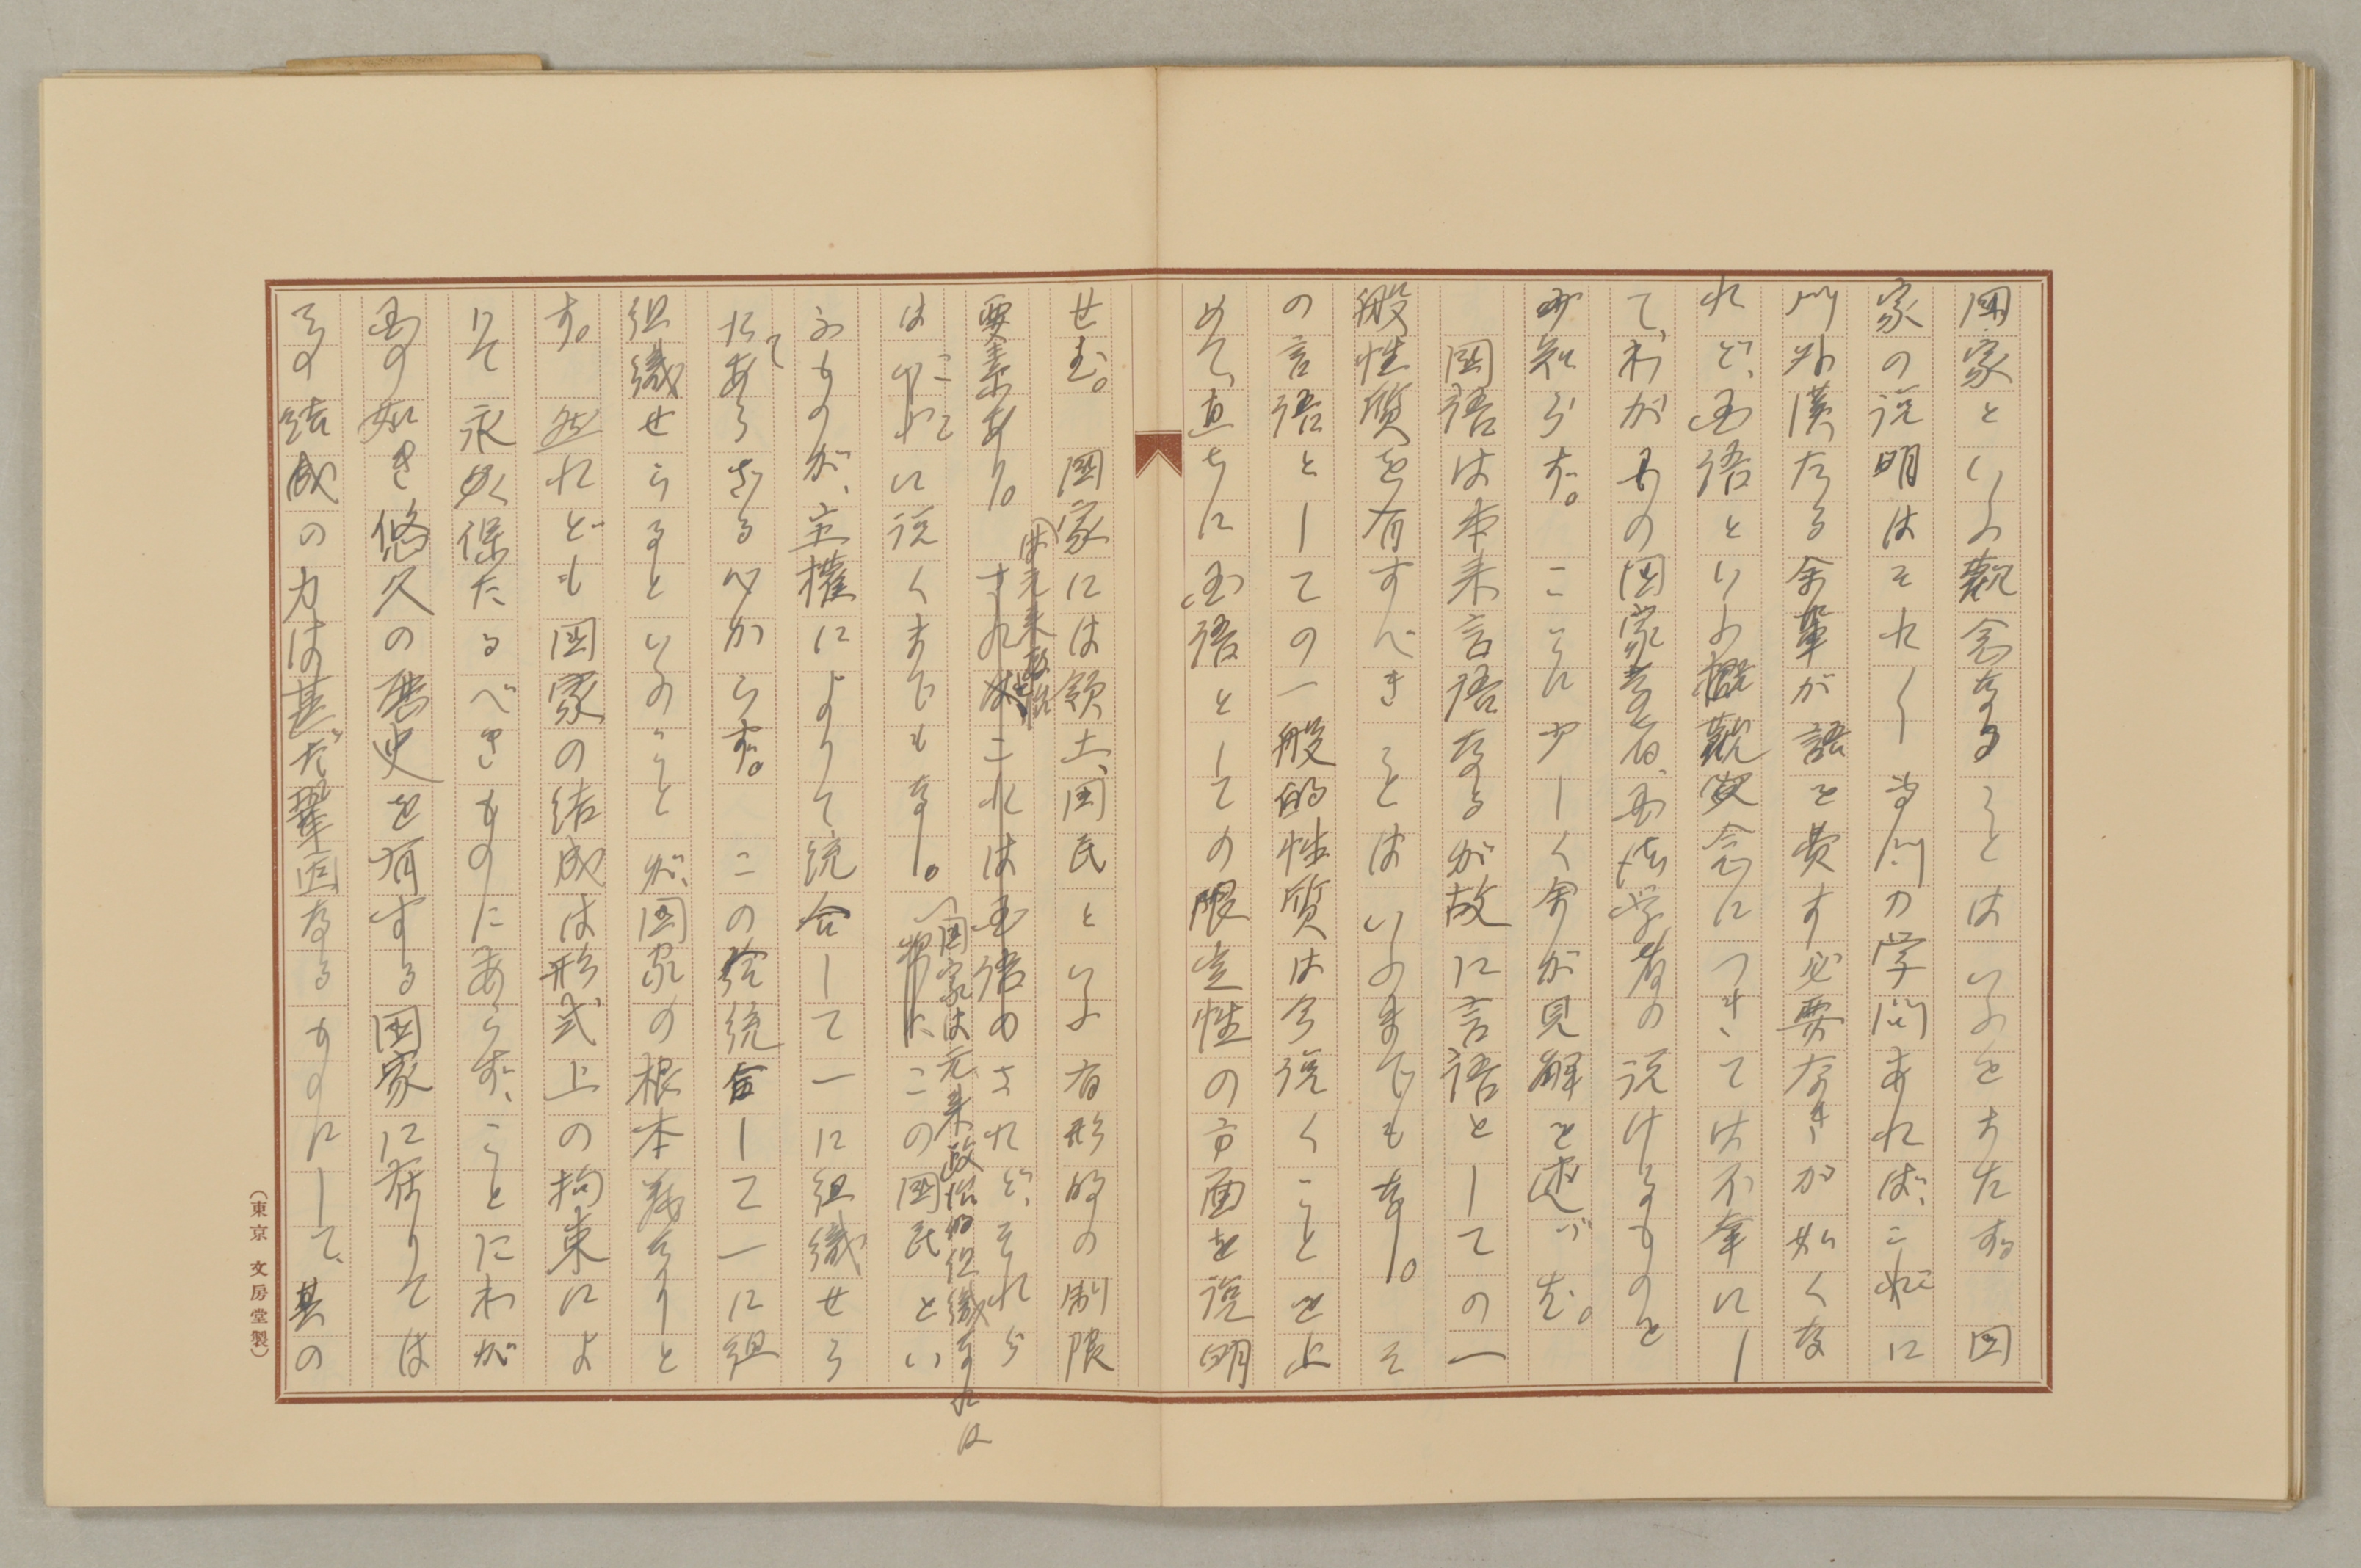 国家といふ観念なることはいふをまたず。国
家の説明はそれ〳〵専門の学問あれば、これに
門外漢たる余輩が語を費す必要なきが如くな
れど、国語といふ概観念につきては不幸にし
て、わが国の国家学者、国法学者の説けるものを
知らず。ここに少しく余が見解を述べむ。
国語は本来言語なるが故に言語としての一
般性質を有すべきことはいふまでもなし。そ
の言語としての一般的性質は今説くことを止
めて、直ちに国語としての限定性の方面を説明
せむ。国家には領土、国民といふ有形的の制限
要素あり。されどこれは国語のされど、それら
はここに説くまでもなし。国家は元来政治的組織なれば
この国民とい
ふものが、主権によりて統合して一に組織せら
れてあらざるべからず。この統合して一に組
組織せらるといふことが、国家の根本義なりと
す。然れども国家の結成は形式上の拘束によ
りて永久保たるべきものにあらず、ことにわが
国の如き悠久の歴史を有する国家に在りては
その結成の力は甚だ鞏固なるものにして、其の
(東京 文房堂製)